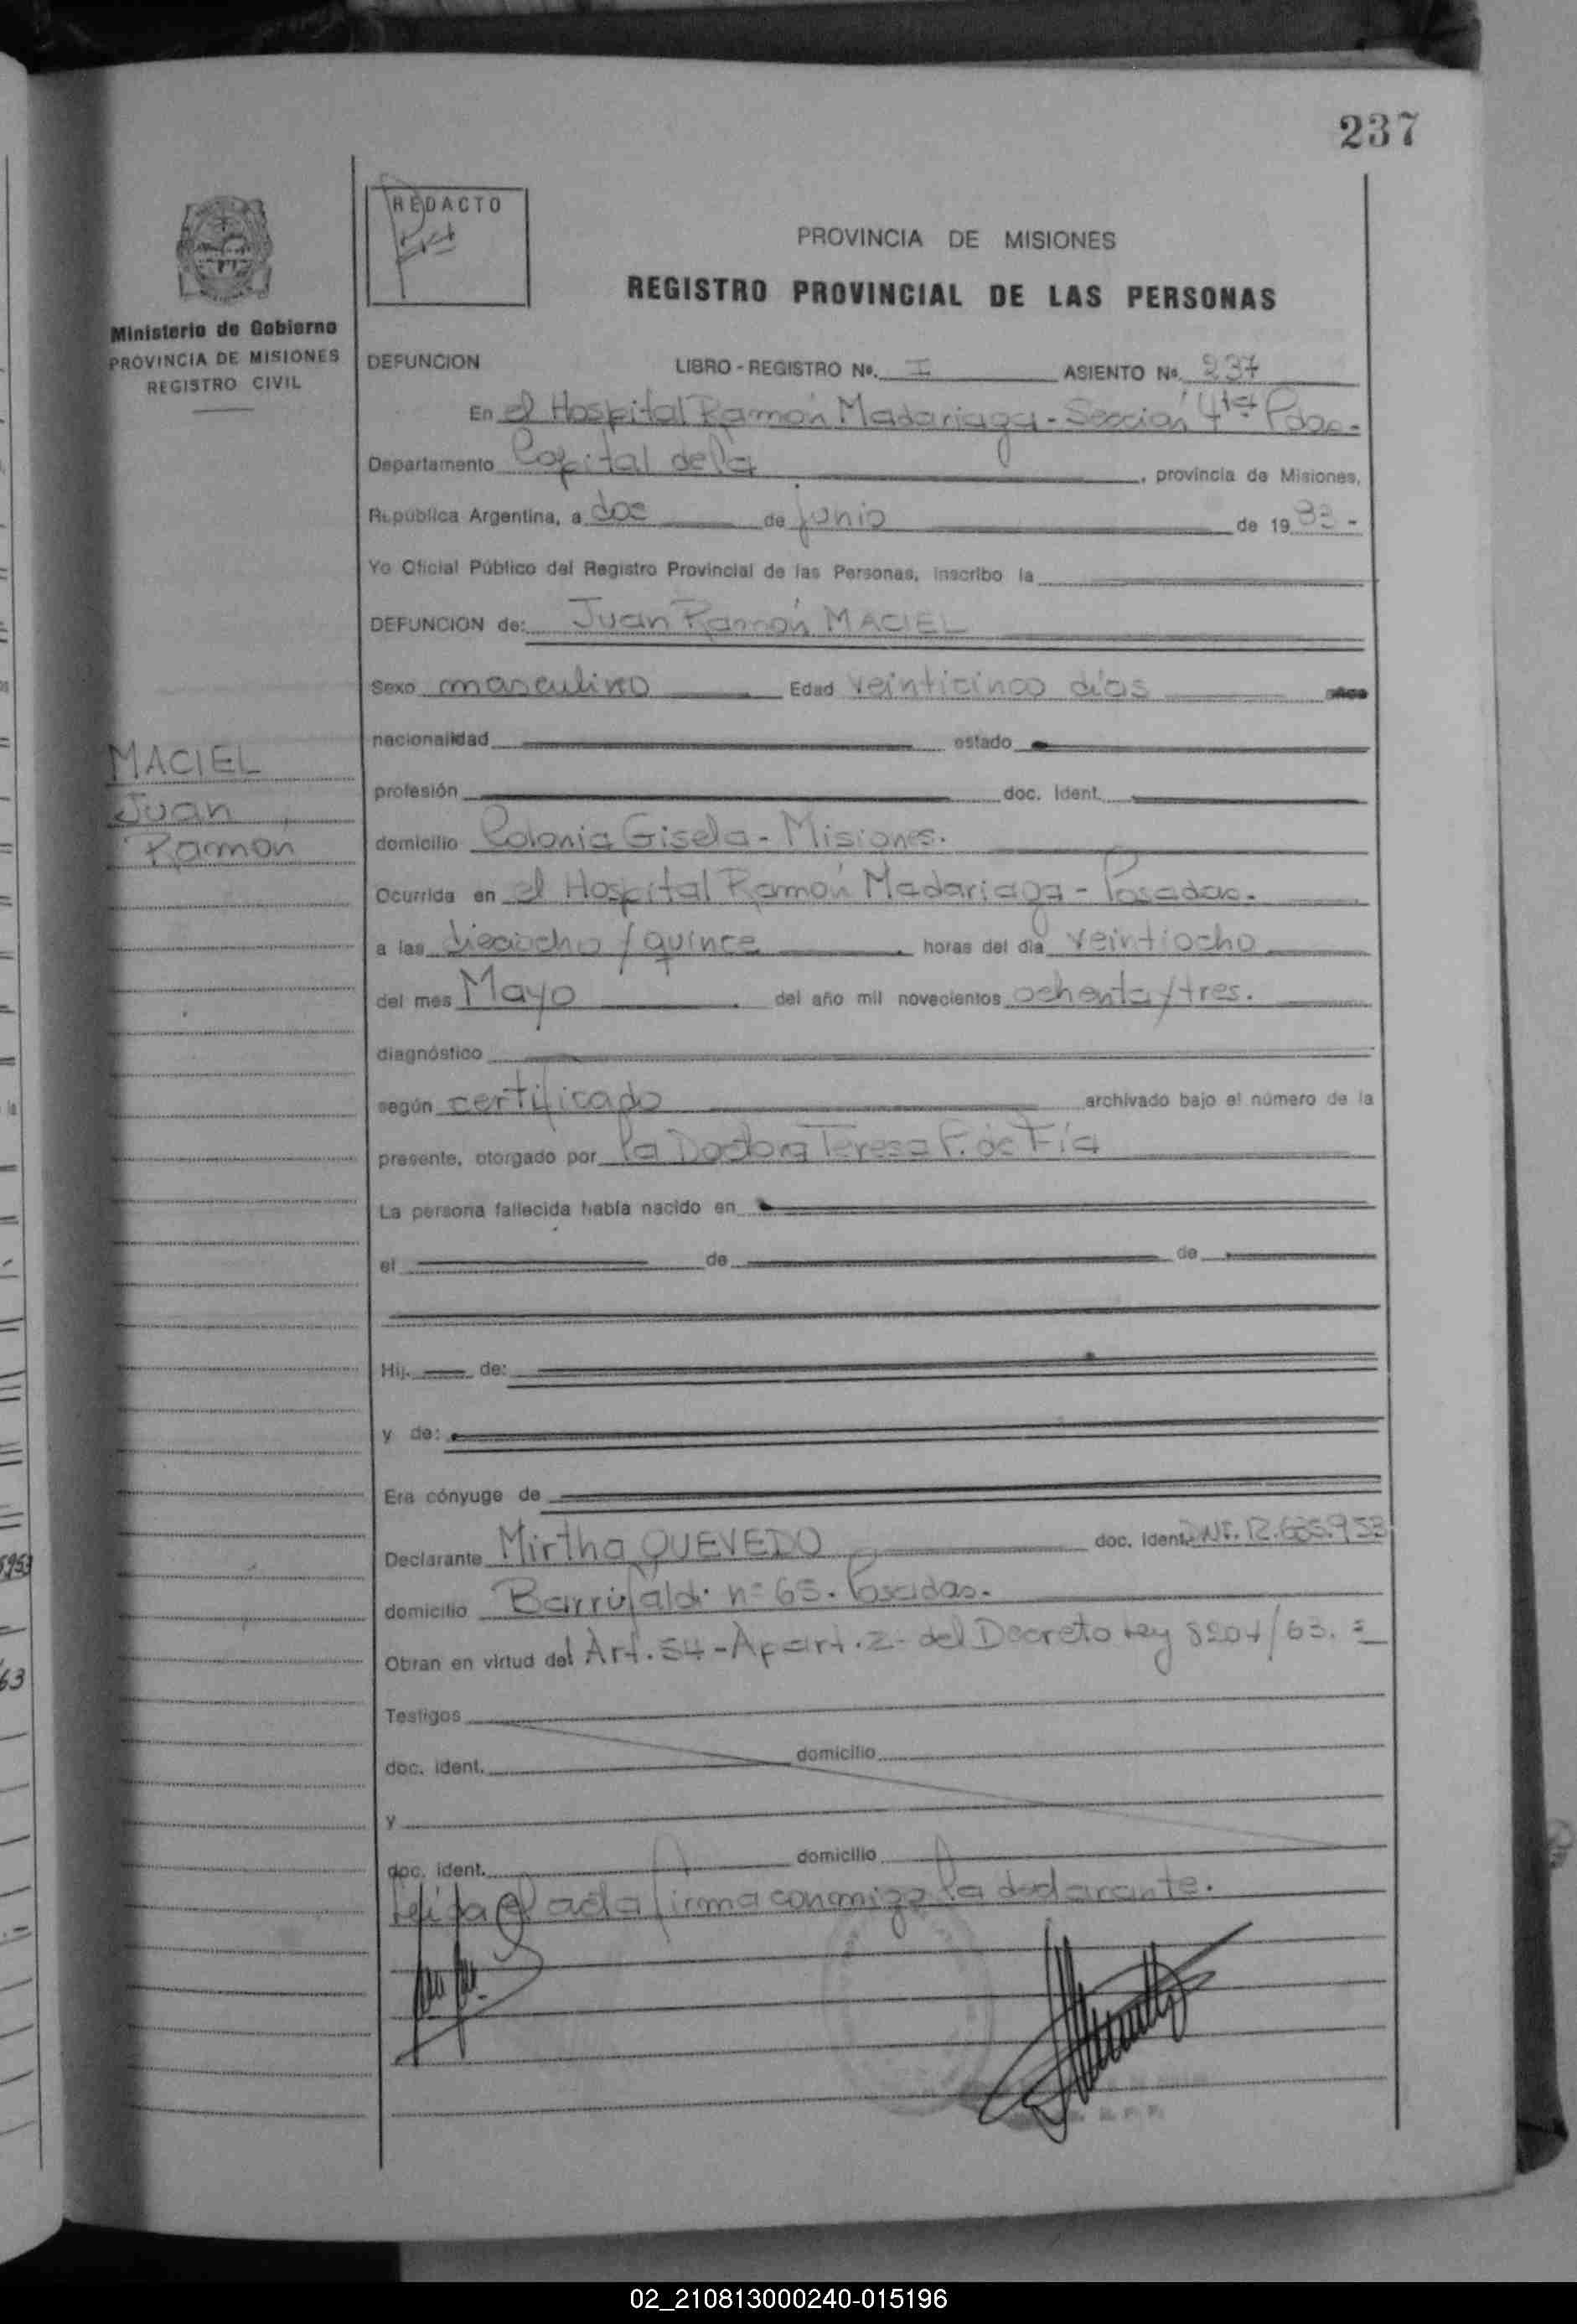 237
REDACTO
PROVINCIA DE MISIONES
REGISTRO PROVINCIAL DE LAS PERSONAS
Ministerio de Gobierno
PROVINCIA DE MISIONES
REGISTRO CIVIL
DEFUNCION LIBRO - REGISTRO Nº. I ASIENTO Nº. 237
En el Hospital Ramón Madariaga - Sección 4ta Pdas.-
Departamento Capital de la, provincia de Misiones,
República Argentina, a dos de junio de 19 83 -
Yo Oficial Público del Registro Provincial de las Personas, inscribo la
DEFUNCION de: Juan Ramón MACIEL
Sexo masculino Edad veinticinco días años
nacionalidad estado
MACIEL
Juan
Ramón
profesión doc. Ident.
domicilio Colonia Gisela - Misiones.
Ocurrida en el Hospital Ramón Madariaga - Posadas.
a las dieciocho / quince horas del día veintiocho
del mes Mayo del año mil novecientos ochenta / tres.
diagnóstico
según certificado archivado bajo el número de la
presente, otorgado por la Doctora Teresa F. de
La persona fallecida había nacido en
el de de
Hij. de:
y de:
Era cónyuge de
Declarante Mirtha QUEVEDO doc. Ident.
domicilio nº 65. Posadas.
Obran en virtud del Art. 54 - Apart. 2 - del Decreto Ley 8204/63. =
Testigos
doc. ident. domicilio
y
doc. ident. domicilio
Leída el acta firma conmigo la declarante.
02_210813000240-015196